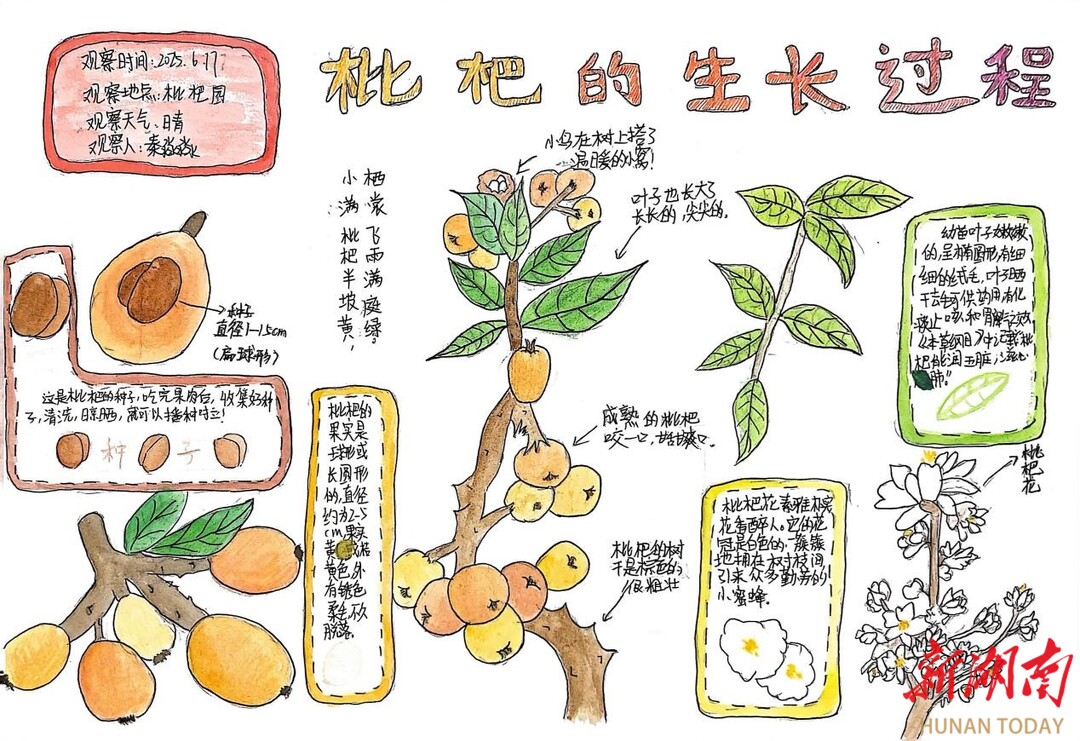 枇杷的生长过程
观察时间:2025.6.17
观察地点:枇杷园
观察天气:晴
观察人:秦淼淼
小满枇杷半坡黄,
飞雨满庭绿。
小鸟在树上搭了
温暖的小窝!
叶子也长大了
长长的,尖尖的。
种子
直径1-1.5cm
(扁球形)
这是枇杷的种子,吃完果肉后,收集好种
子,清洗,晾晒,就可以播种啦!
种子
枇杷的
果实是
球形或
长圆形
的,直径
约为2-5
cm果实
黄色或橘
黄色,外
有锈色
柔毛,不久
脱落。
成熟的枇杷
咬一口,甜甜爽口。
枇杷的树
干是棕色的
很粗壮
幼苗叶子嫩嫩
的,呈椭圆形,有细
细的绒毛,叶子晒
干可供药用,有化
痰止咳,和胃等功效
《本草纲目》中记载“枇
杷能润五脏,滋心
肺。”
枇杷花
枇杷花素雅朴实
花香醉人。它的花
冠是白色的一簇簇
地拥在树枝间
引来众多勤劳的
小蜜蜂。
新湖南
HUNAN TODAY